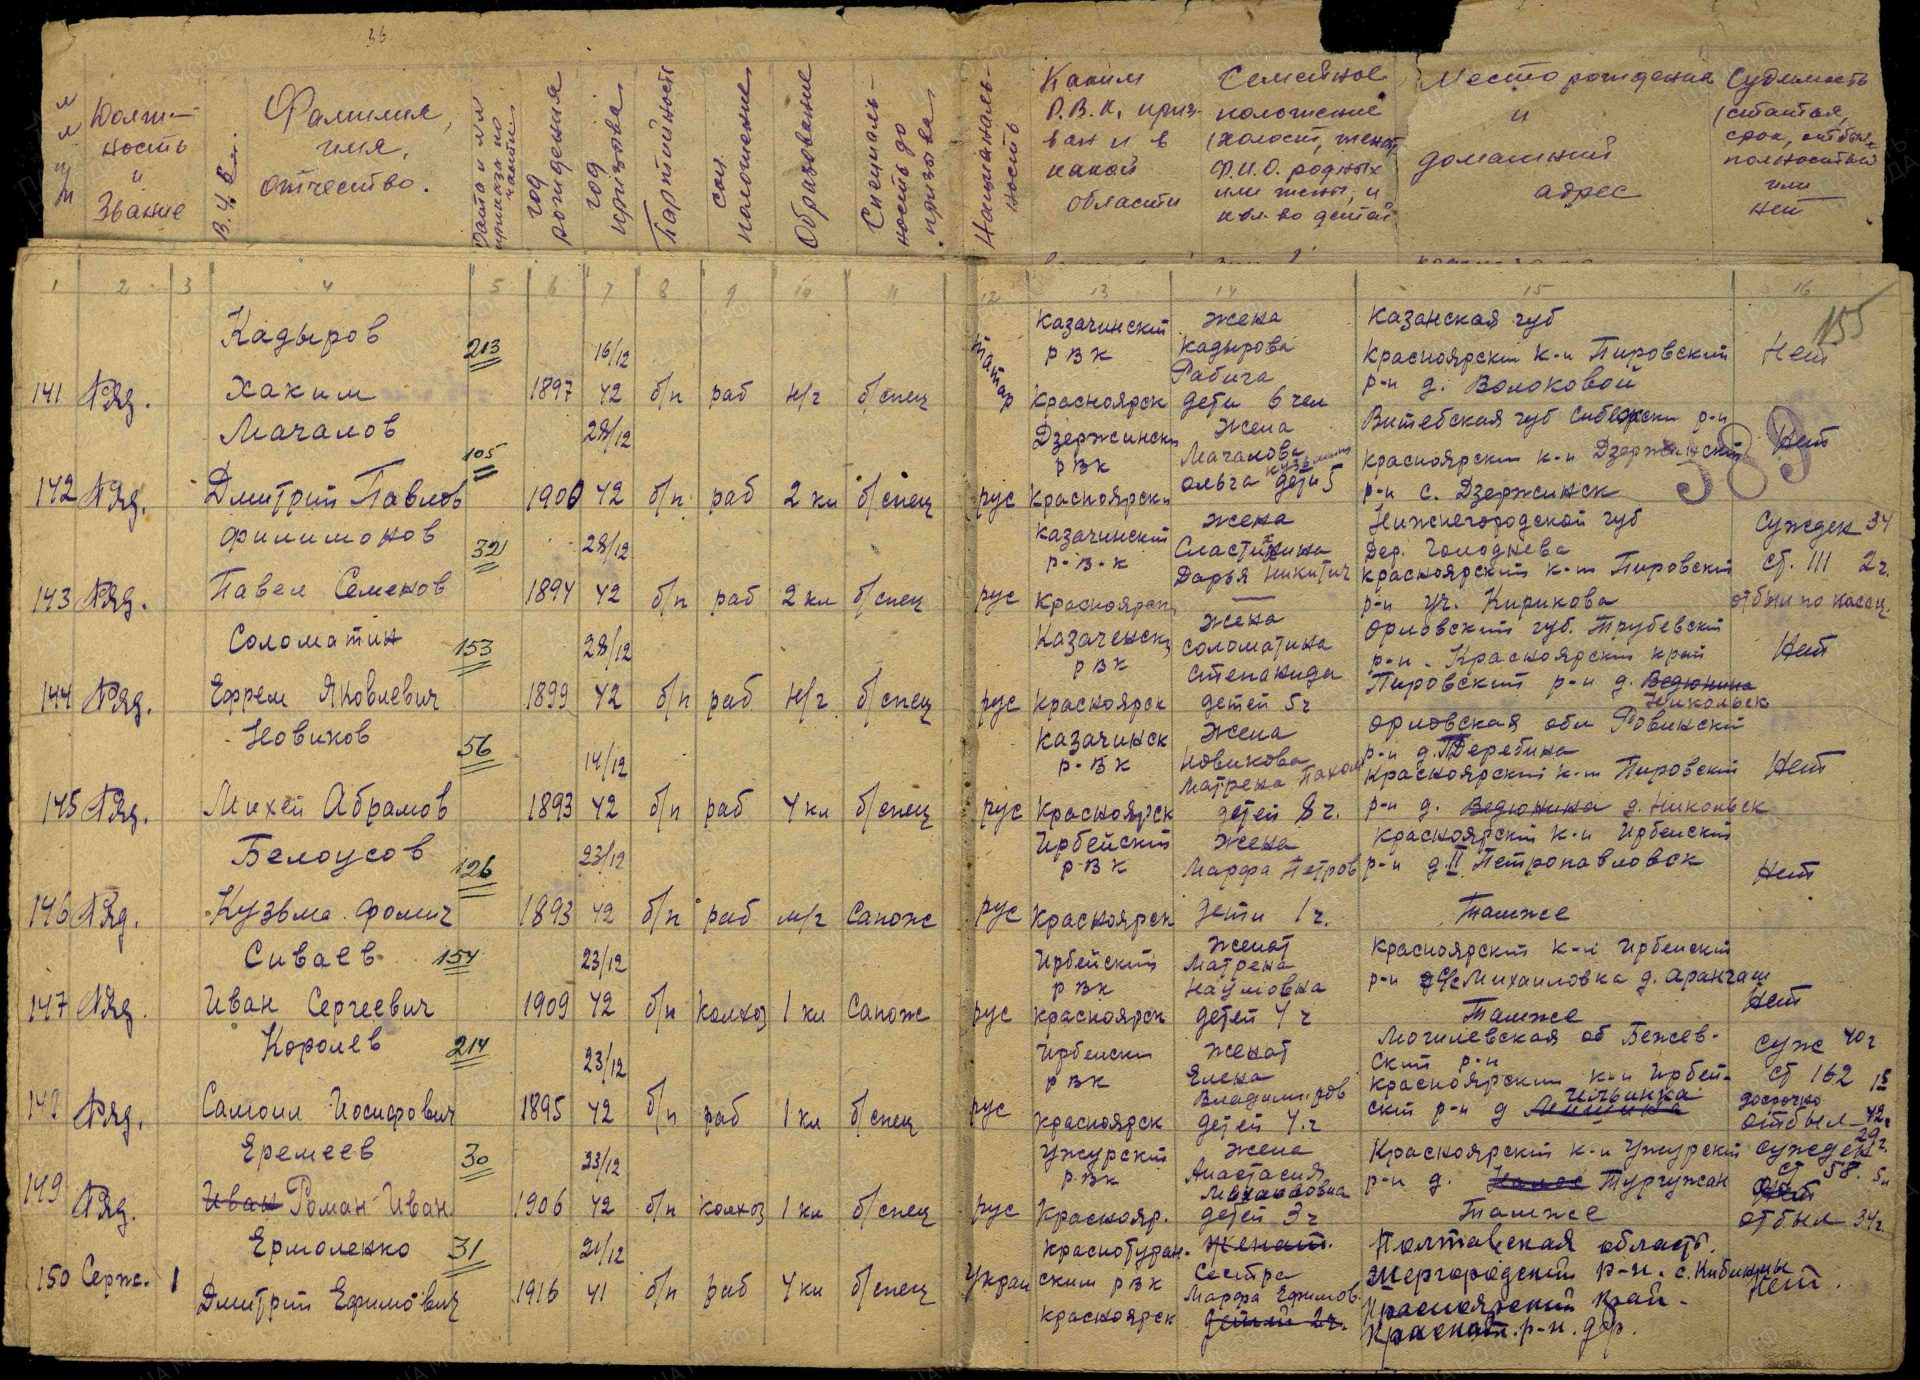 36
№№ п/п
Должность и Звание
В.У.С.
Фамилия, имя, отчество.
Дата и № приказа по части
год рождения
год призыва
Партийность
соц. положение
Образование
Специальность до призыва
Национальность
Каким Р.В.К. призван и в какой области
Семейное положение (холост, женат, Ф.И.О. родных или жены, и кол-во детей
Место рождения и домашний адрес
Судимость (статья, срок, отбыл полностью или нет
1 2 3 4 5 6 7 8 9 10 11 12 13 14 15 16
155
389
141 Ряд. Кадыров Хаким 213 1897 16/12 42 б/п раб н/г б/спец татар Казачинский РВК Красноярск жена Кадырова Рабига дети 6 чел Казанская губ Красноярский к-й Пировский р-н д. Волоковой Нет
142 Ряд. Мачалов Дмитрий Павлов 105 1900 28/12 42 б/п раб 2 кл б/спец рус Дзержински РВК Красноярски Жена Мачалова Ольга Кузьмин дети 5 Витебская губ р-н Красноярский к-й Дзержинский р-н с. Дзержинск Нет
143 Ряд. Филимонов Павел Семенов 32 1894 28/12 42 б/п раб 2 кл б/спец рус Казачинский Р-В-К Красноярск жена Сластихина Дарья Никитич Нижнегородской губ Дер. Голоднева Красноярский к-й Пировский р-н уч. Кирикова Сужден 34 ст. 111 2 г. отбыл
144 Ряд. Соломатин Ефрем Яковлевич 153 1899 28/12 42 б/п раб н/г б/спец рус Казаченск РВК Красноярск жена Соломатина Степанида детей 5 ч Орловский губ. Трубевский р-н. Красноярский край Пировский р-н д. Ведюнина Никольск Нет
145 Ряд. Новиков Михей Абрамов 56 1893 14/12 42 б/п раб 4 кл б/спец рус Казачинск Р-ВК Красноярск Жена Новикова Матрена Пахом детей 8 ч. Орловская обл Ровинский р-н д. Деребина Красноярский к-й Пировский р-н д. Ведюнина д. Никольск Нет
146 Ряд. Белоусов Кузьма Фомич 126 1893 23/12 42 б/п раб м/г Сапожн рус Ирбейский РВК Красноярск Жена Марфа Петров дети 1 ч. Красноярский к-й Ирбейский р-н д. II Петропавловск Также Нет
147 Ряд. Сиваев Иван Сергеевич 154 1909 23/12 42 б/п колхоз 1 кл Сапож рус Ирбейский РВК Красноярск Женат Матрена Наумовна детей 4 ч Красноярский к-й Ирбейский р-н с/с Михайловка д. Арангаш Также Нет
148 Ряд. Королев Самоил Иосифович 214 1895 23/12 42 б/п раб 1 кл б/спец рус Ирбейски РВК Красноярск Женат Елена Владимиров детей 4 ч Могилевская об Бежевский р-н Красноярский к-й Ирбейский р-н д Ильинка Суж 40 г ст 162 досрочно отбыл 42 г
149 Ряд. Еремеев Иван Роман Иван. 30 1906 23/12 42 б/п колхоз 1 кл б/спец рус Ужурский РВК Краснояр. Жена Анастасия детей 3 ч Красноярский к-й Ужурский р-н д. Тургужан Также сужден 29 г ст 58. Нет отбыл 34 г.
150 Серж. 1 Ермоленко Дмитрий Ефимович 31 1916 21/12 41 б/п раб 4 кл б/спец Украи Краснотуранским РВК Красноярск Женат. Сестра Марфа Ефимов. детей 2 ч. Полтавская область. р-н. с. Кибинцы Красноярский край. Краснот. р-н. дер. Нет.